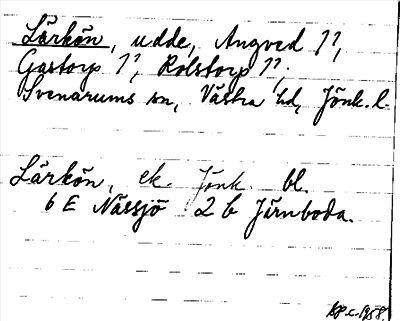 Lärkön, udde, Angved 1⁄1,
Gastorp 1⁄1, Rolstorp 1⁄1.
Svenarums sn, Västra hd, Jönk. l.
Lärkön, ek. Jönk. bl.
6 E Nässjö 2 b Järnboda.
1958.